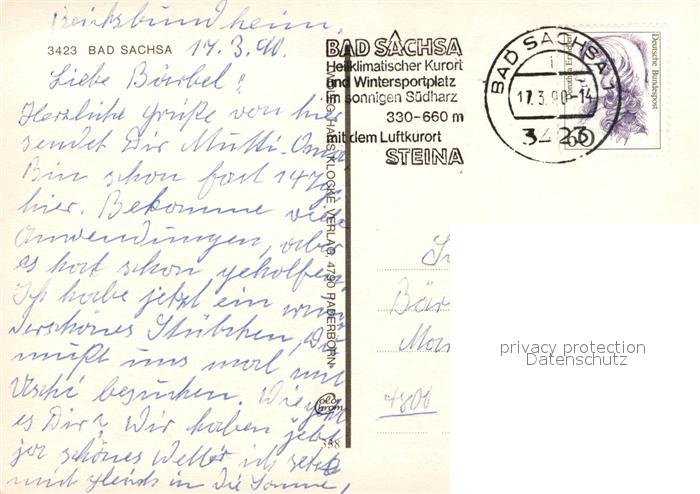 Reichsbundheim,
3423 BAD SACHSA 17.3.90.
Liebe Bärbel!
Herzliche Grüße von hier
sendet Dir Mutti-Oma.
Bin schon fast 14 Tg
hier. Bekomme viele
Anwendungen, aber
es hat schon geholfen.
Ich habe jetzt ein wun
derschönes Stübchen, Du
mußt uns mal mit
Uschi besuchen. Wie geht
es Dir? Wir haben jetzt
so schönes Wetter ich setze
mich gleich in die Sonne,
BAD SACHSA
Heilklimatischer Kurort
und Wintersportplatz
im sonnigen Südharz
330-660 m
mit dem Luftkurort
STEINA
BAD SACHSA 1
i
17.3.90-14
3423
Deutsche Bundespost
60
HANS KLOCKE VERLAG, 4790 PADERBORN
Color
chrom
338
Bär
4800
privacy protection
Datenschutz